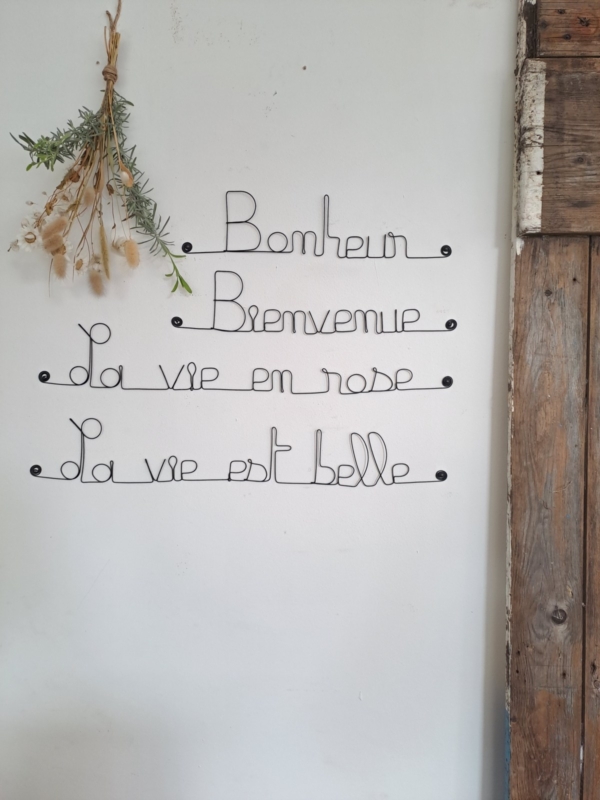 Bonheur
Bienvenue
La vie en rose
La vie est belle